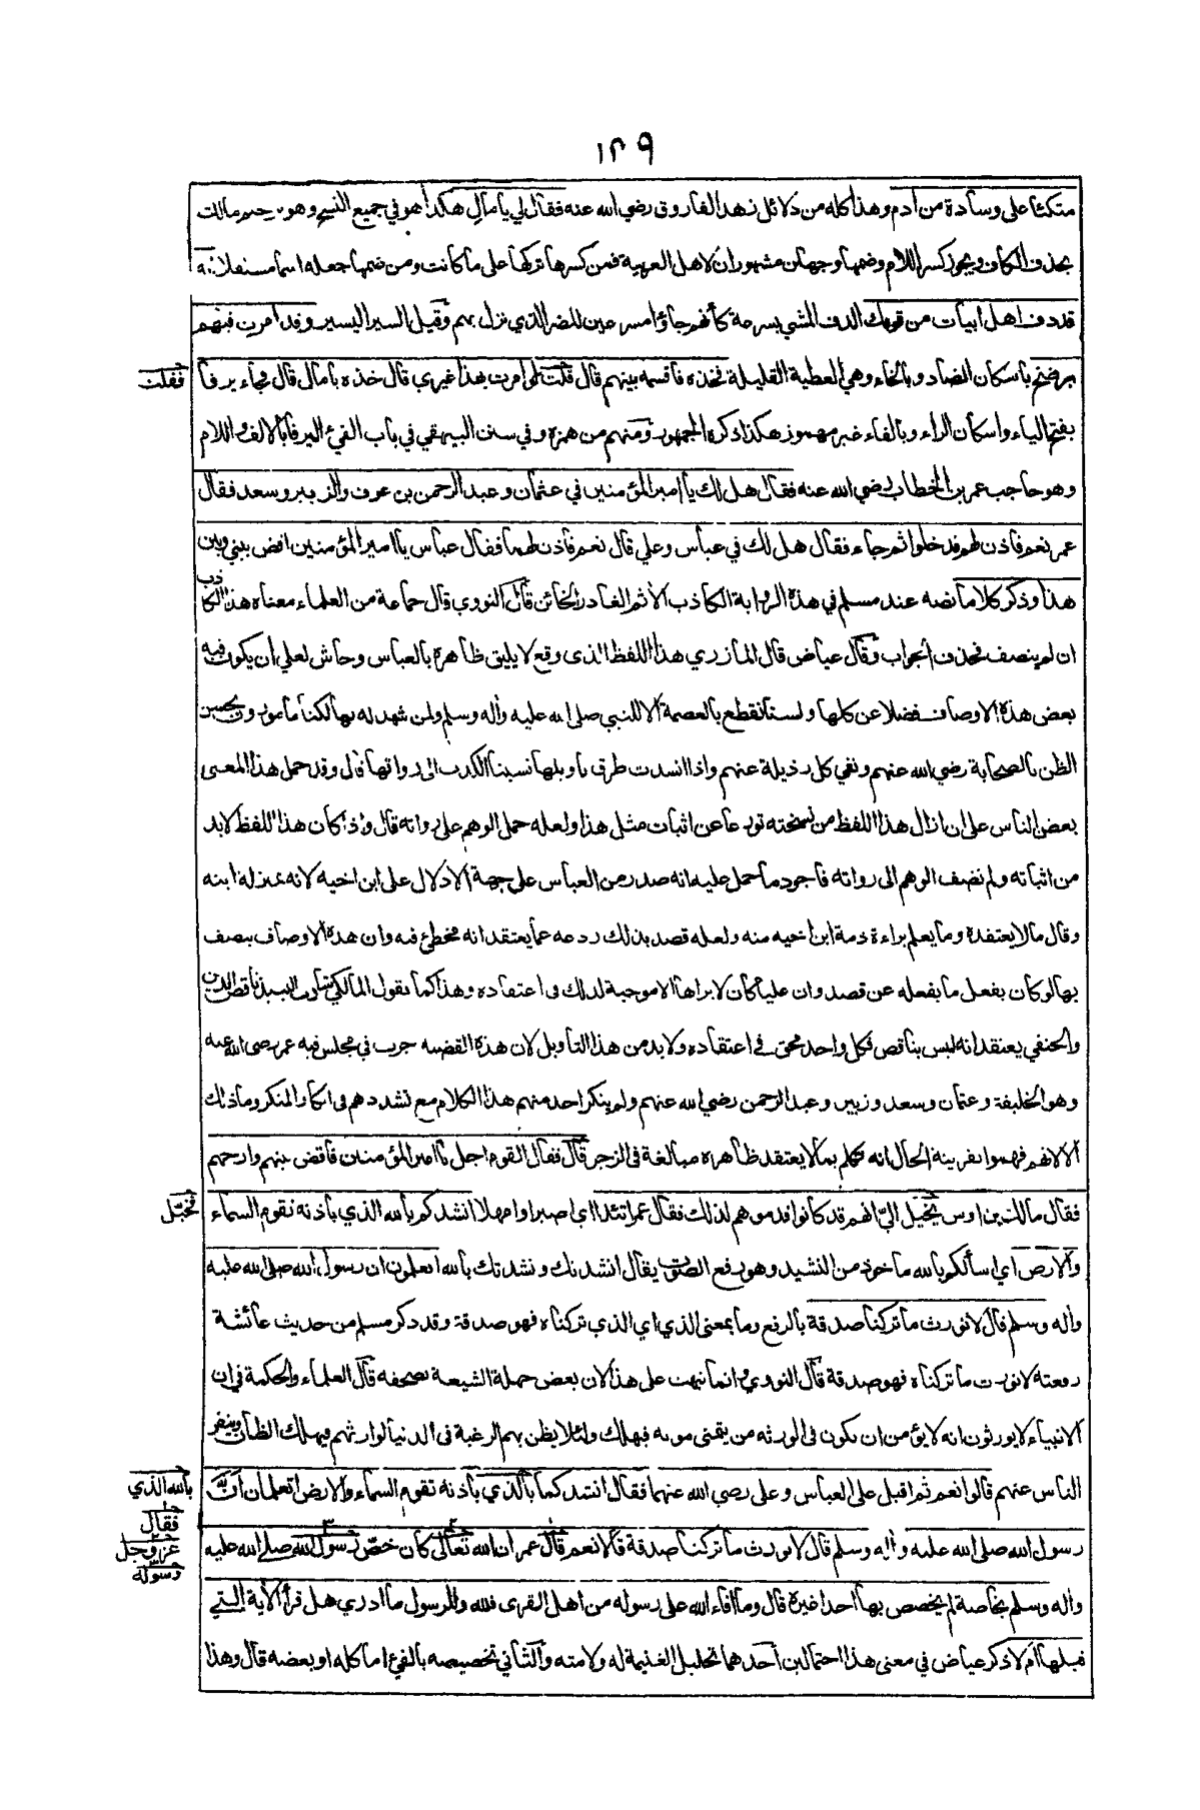 ١٣٩
متكئا على وسادة من أدم وهذا كله من دلائل زهد الفاروق رضي الله عنه فقال لي يا مال هكذا هو في جميع النسخ وهو ترخيم مالك
بحذف الكاف ويجوز كسر اللام وضمها وجهان مشهوران لاهل العربية فمن كسرها تركها على ما كانت ومن ضمها جعله اسما مستقلا انه
قد دف اهل ابيات من قومك الدف المشي بسرعة كأنهم جاؤا مسرعين للضر الذي نزل بهم وقيل السير اليسير وقد امرت فيهم
برضخ باسكان الضاد وبالخاء وهي العطية القليلة فخذه فاقسمه بينهم قال قلت لو امرت بهذا غيري قال خذه يا مال قال فجاء يرفا
فقلت
بفتح الياء واسكان الراء وبالفاء غير مهموز هكذا ذكره الجمهور ومنهم من همزه وفي سنن البيهقي في باب الفيئ اليرفا بالالف واللام
وهو حاجب عمر بن الخطاب رضي الله عنه فقال هل لك يا امير المؤمنين في عثمان وعبد الرحمن بن عوف والزبير وسعد فقال
عمر نعم فأذن لهم فدخلوا ثم جاء فقال هل لك في عباس وعلي قال نعم فأذن لهما فقال عباس يا امير المؤمنين اقض بيني وبين
هذا وذكر كلاما نصه عند مسلم في هذه الرواية الكاذب الآثم الغادر الخائن قال النووي قال جماعة من العلماء معناه هذا الكاذب
ان لم ينصف فحذف الجواب وقال عياض قال المازري هذا اللفظ الذى وقع لا يليق ظاهره بالعباس وحاش لعلي ان يكون فيه
بعض هذه الاوصاف فضلا عن كلها ولسنا نقطع بالعصمة الا للنبي صلى الله عليه وأله وسلم ولمن شهد له بها لكنا مأمورون بحسن
الظن بالصحابة رضي الله عنهم ونفي كل رذيلة عنهم واذا انسدت طرق تاويلها نسبنا الكذب الى رواتها قال وقد حمل هذا المعنى
بعض الناس على ان ازال هذا اللفظ من نسخته تورعا عن اثبات مثل هذا ولعله حمل الوهم على رواته قال واذا كان هذا اللفظ لا بد
من اثباته ولم نضف الوهم الى رواته فاجود ما حمل عليه انه صدر من العباس على جهة الادلال على ابن اخيه لانه بمنزلة ابنه
وقال ما لا يعتقده وما يعلم براءة ذمة ابن اخيه منه ولعله قصد بذلك ردعه عما يعتقد انه مخطئ فيه وان هذه الاوصاف يتصف
بها لو كان يفعل ما يفعله عن قصد وان عليا كان لا يراها الا موجبة لذلك فى اعتقاده وهذا كما يقول المالكي شارب النبيذ ناقص الدين
والحنفي يعتقد انه ليس بناقص فكل واحد محق في اعتقاده ولا بد من هذا التأويل لان هذه القضية جرت في مجلس فيه عمر رضى الله عنه
وهو الخليفة وعثمان وسعد وزبير وعبد الرحمن رضي الله عنهم ولم ينكر احد منهم هذا الكلام مع تشددهم فى انكار المنكر وما ذلك
الا لانهم فهموا بقرينة الحال انه تكلم بما لا يعتقد ظاهره مبالغة فى الزجر قال فقال القوم اجل يا امير المؤمنين فاقض بينهم وارحهم
فقال مالك بن اوس يخيل اليّ انهم قد كانوا قدموهم لذلك فقال عمر اتئدا اي اصبرا وامهلا انشدكم بالله الذي باذنه تقوم السماء
فخيّل
والارض اي اسألكم بالله ماخوذ من النشيد وهو رفع الصوت يقال انشدتك ونشدتك بالله اتعلمون ان رسول الله صلى الله عليه
وأله وسلم قال لا نورث ما تركنا صدقة بالرفع وما بمعنى الذي اي الذي تركناه فهو صدقة وقد ذكر مسلم من حديث عائشة
رفعته لا نورث ما تركناه فهو صدقة قال النووي وانما نبهت على هذا لان بعض جملة الشيعة تصحفه قال العلماء والحكمة في ان
الانبياء لا يورثون انه لا يؤمن ان يكون فى الورثة من يتمنى موته فيهلك ولئلا يظن بهم الرغبة فى الدنيا لوارثهم فيهلك الظان وينفر
الناس عنهم قالوا نعم ثم اقبل على العباس وعلى رضى الله عنهما فقال انشدكما بالذي باذنه تقوم السماء والارض اتعلمان ان
بالله الذي
رسول الله صلى الله عليه وأله وسلم قال لا نورث ما تركنا صدقة قالا نعم قال عمر ان الله تعالى كان خصّ رسول الله صلى الله عليه
فقال
عز وجل
رسوله
وأله وسلم بخاصة لم يخصص بها احدا غيره قال وما افاء الله على رسوله من اهل القرى فلله وللرسول ما ادري هل قرأ الآية التي
قبلها ام لا ذكر عياض في معنى هذا احتمالين احدهما تحليل الغنيمة له ولامته والثاني تخصيصه بالفيئ اما كله او بعضه قال وهذا